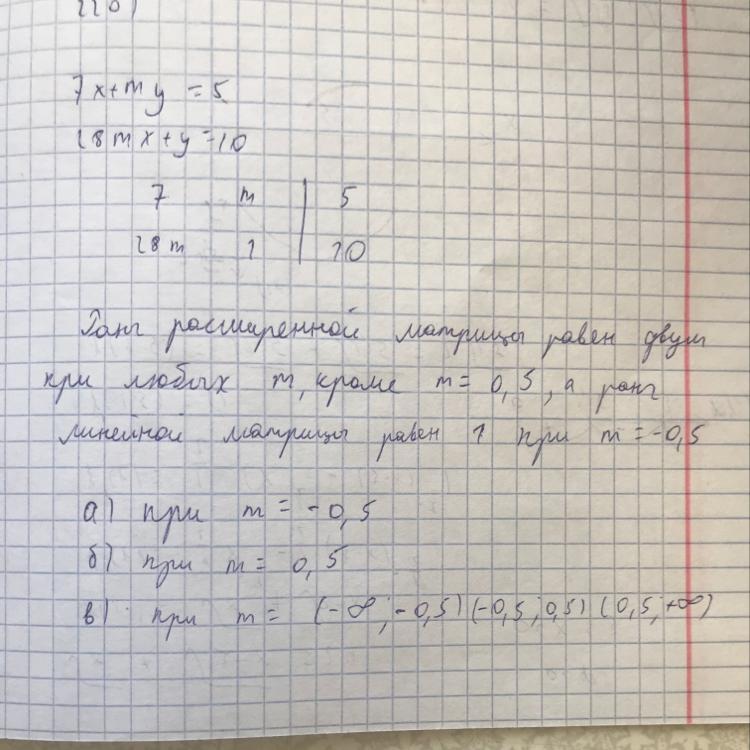 7x+my =5
28mx+y=10
7 m | 5
28m 1 | 10
Ранг расширенной матрицы равен двум
при любых m, кроме m= 0,5, а ранг
линейной матрицы равен 1 при m=-0,5
а) при m = -0,5
б) при m = 0,5
в) при m = (-∞;-0,5)(-0,5;0,5)(0,5;+∞)